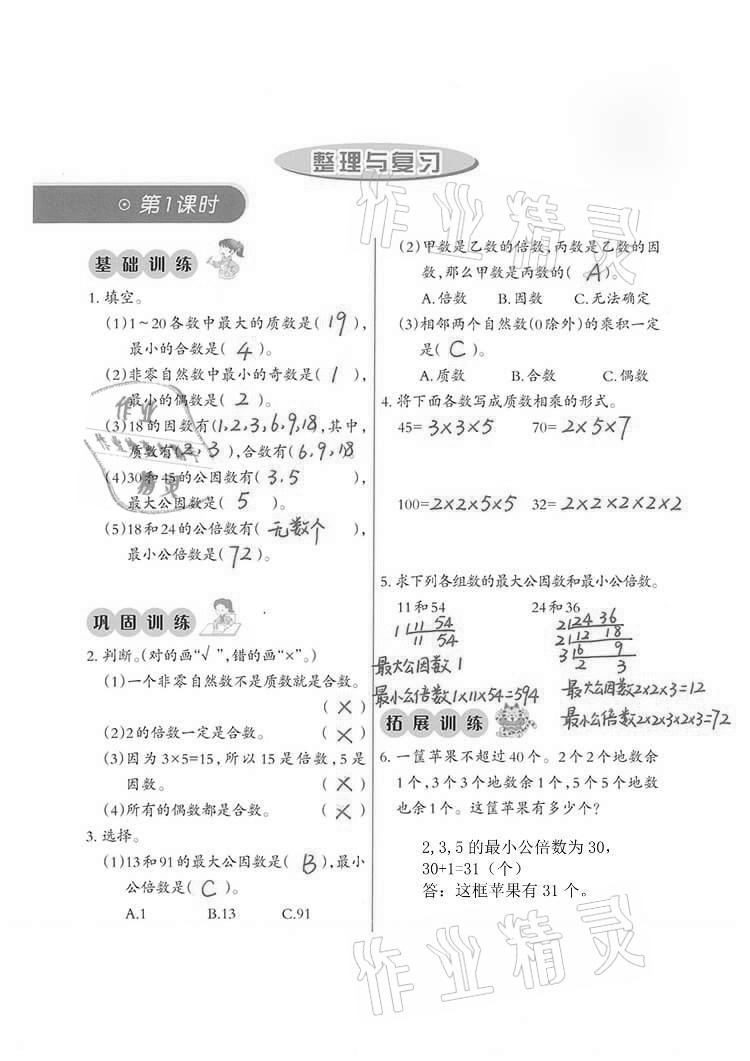 整理与复习
第1课时
基础训练
1. 填空。
(1)1~20各数中最大的质数是( 19 ),
最小的合数是( 4 )。
(2)非零自然数中最小的奇数是( 1 ),
最小的偶数是( 2 )。
(3)18的因数有(1,2,3,6,9,18,其中,
质数有(2,3),合数有(6,9,18
(4)30和45的公因数有( 3.5 ),
最大公因数是( 5 )。
(5)18和24的公倍数有( 无数个 ),
最小公倍数是( 72 )。
巩固训练
2. 判断。(对的画“√”,错的画“×”。)
(1)一个非零自然数不是质数就是合数。
( × )
(2)2的倍数一定是合数。 ( × )
(3)因为3×5=15,所以15是倍数,5是
因数。 ( × )
(4)所有的偶数都是合数。 ( × )
3. 选择。
(1)13和91的最大公因数是( B ),最小
公倍数是( C )。
A.1 B.13 C.91
(2)甲数是乙数的倍数,丙数是乙数的因
数,那么甲数是丙数的( A )。
A.倍数 B.因数 C.无法确定
(3)相邻两个自然数(0除外)的乘积一定
是( C )。
A.质数 B.合数 C.偶数
4. 将下面各数写成质数相乘的形式。
45= 3×3×5 70= 2×5×7
100= 2×2×5×5 32= 2×2×2×2×2
5. 求下列各组数的最大公因数和最小公倍数。
11和54 24和36
1 11 54 2 24 36
11 54 2 12 18
3 6 9
2 3
最大公因数1
最小公倍数1×11×54=594
最大公因数2×2×3=12
最小公倍数2×2×3×2×3=72
拓展训练
6. 一筐苹果不超过40个。2个2个地数余
1个,3个3个地数余1个,5个5个地数
也余1个。这筐苹果有多少个?
2,3,5的最小公倍数为30,
30+1=31(个)
答:这框苹果有31个。
作业精灵
作业精灵